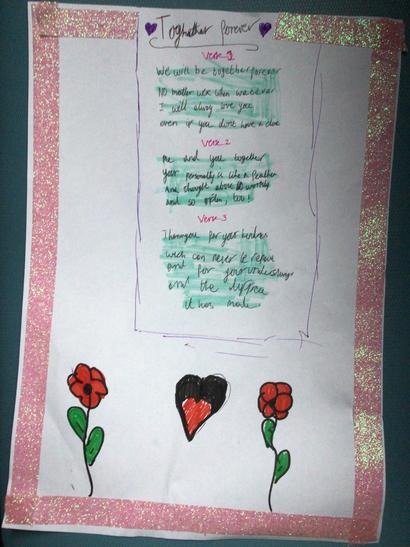 Toghether forever
Verse 1
We will be together forever
NO matter
I will alway love you
even if you dont have a clue
Verse 2
me and you together
your personally is like a feather
and thought above
and so often, too!
Verse 3
Thankyou for your kindnes
wich can never be repaie
and for your
and the
it has made